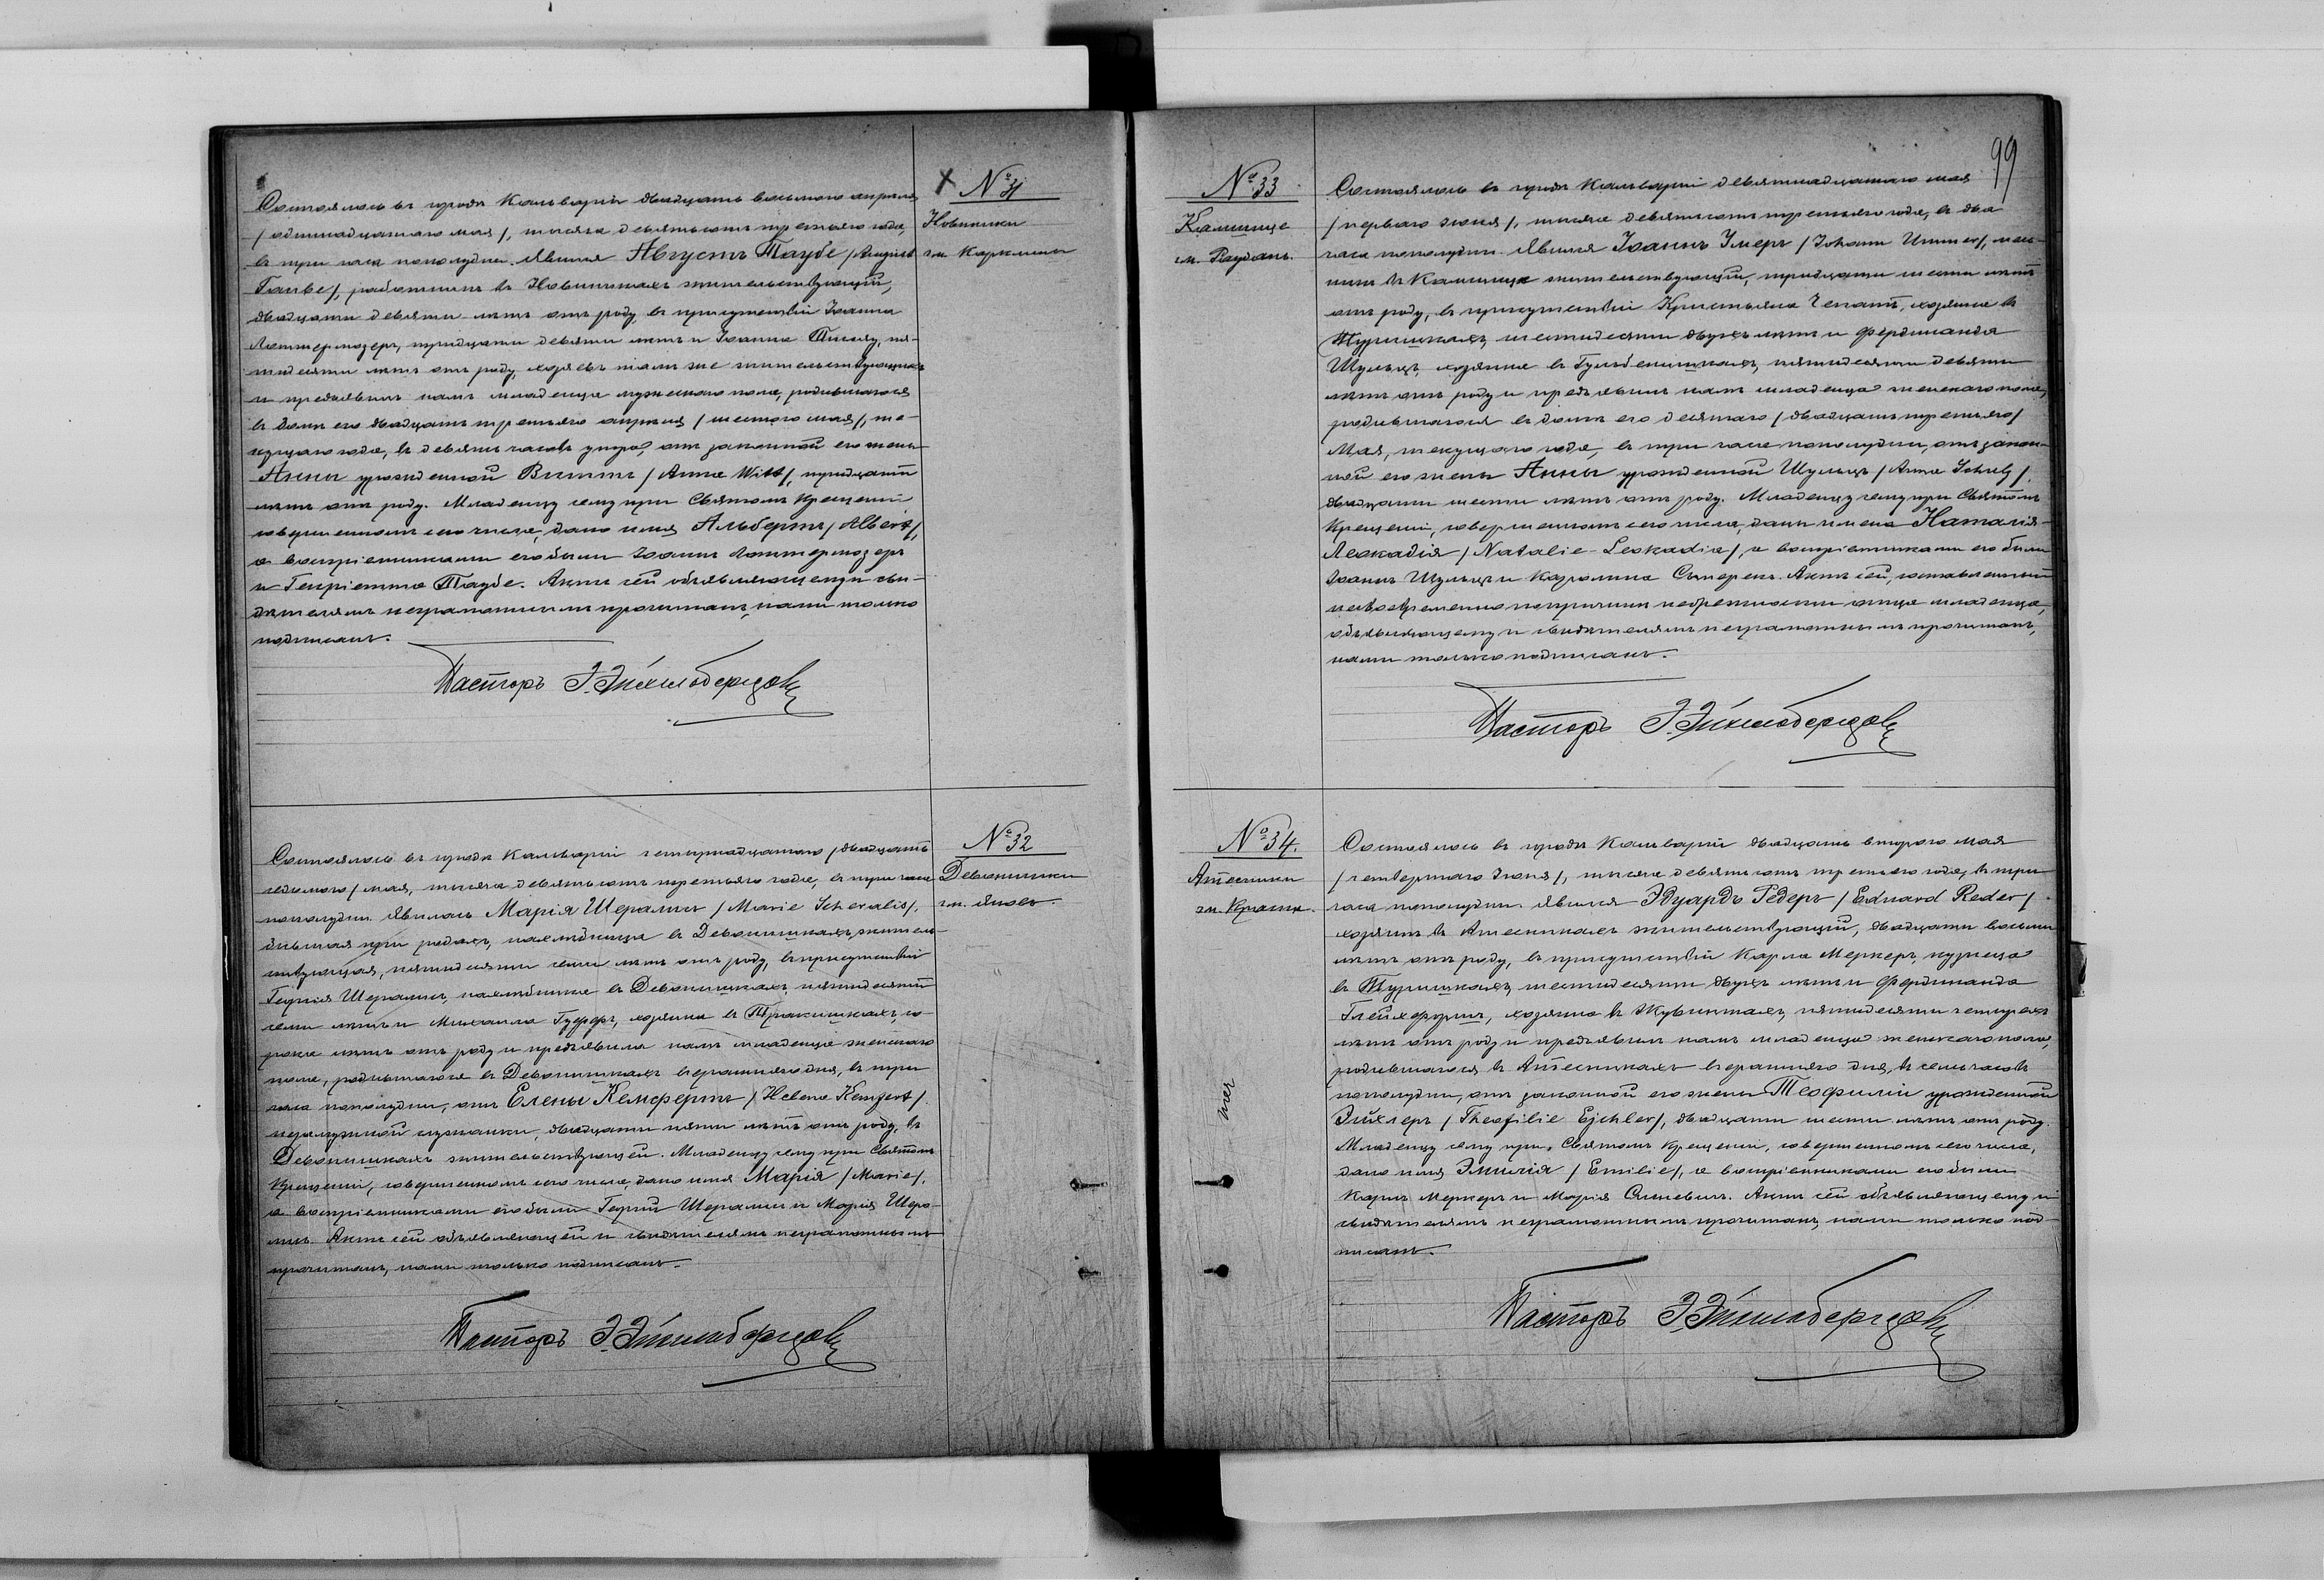 № 31
Новинники
гм. Каркмины
Состоялось въ городѣ Кальваріи двадцать восьмого апрѣля
/одиннадцатаго мая/, тысяча девятьсотъ третьяго года,
въ три часа пополудни. Явился Августъ Таубе /August
Taube/, работникъ въ Новинникахъ жительствующій,
двадцати девяти лѣтъ отъ роду, въ присутствіи Іоанна
Лоттермозеръ, тридцати девяти лѣтъ и Іоанна пя-
тидесяти лѣтъ отъ роду, хозяевъ тамъ же жительствующихъ
и предъявилъ намъ младенца мужескаго пола, родившагося
въ домѣ его двадцать третьяго апрѣля /шестого мая/, те-
кущаго года, въ девять часовъ утра, отъ законной его жены
Анны урожденной Виттъ /Anna Witt/, тридцати
лѣтъ отъ роду. Младенцу сему при Святомъ Крещеніи
совершенномъ сего числа, дано имя Альбертъ /Albert/,
а воспріемниками его были Іоаннъ Лоттермозеръ
и Генріетта Таубе. Актъ сей объявляющему и сви-
дѣтелямъ неграмотнымъ прочитанъ, нами только
подписанъ.
Пасторъ Э.
№ 32
Девонишки
гм. Яновъ.
Состоялось въ городѣ Кальваріи четырнадцатаго /двадцать
седьмого/ мая, тысяча девятьсотъ третьяго года, въ три часа
пополудни. Явилась Марія Шералисъ /Marie Scheralis/,
бывшая при родахъ, нахлѣбница въ Девонишкахъ житель-
ствующая, пятидесяти семи лѣтъ отъ роду, въ присутствіи
Георгія Шералисъ, нахлѣбника въ Девонишкахъ, пятидесяти
семи лѣтъ и Михаила хозяина въ Тракишкахъ, со-
рока лѣтъ отъ роду и предъявила намъ младенца женскаго
пола, родившагося въ Девонишкахъ вчерашняго дня, въ три
часа пополудни, отъ Елены Кемфертъ /Helena Kemfert/,
незамужной служанки, двадцати пяти лѣтъ отъ роду, въ
Девонишкахъ жительствующей. Младенцу сему при Святомъ
Крещеніи, совершенномъ сего числа, дано имя Марія /Marie/,
а воспріемниками его были Георгій Шералисъ и Марія Шера-
лисъ. Актъ сей объявляющей и свидѣтелямъ неграмотнымъ
прочитанъ, нами только подписанъ.
Пасторъ Э.
99
№ 33
Камшице
гм. Раудань.
Состоялось въ городѣ Кальваріи девятнадцатаго мая
/перваго іюня/, тысяча девятьсотъ третьяго года, въ два
часа пополудни. Явился Іоаннъ Имеръ /Johann Immer/,
въ Камшице жительствующій, тридцати шести лѣтъ
отъ роду, въ присутствіи Кристьяна хозяина въ
Туришкахъ, шестидесяти двухъ лѣтъ и Фердинанда
Шульцъ, хозяина въ Гульбенишкахъ, пятидесяти девяти
лѣтъ отъ роду и предъявилъ намъ младенца женскаго пола,
родившагося въ домѣ его десятаго /двадцать третьяго/
Мая, текущаго года, въ три часа пополудни, отъ закон-
ной его жены Анны урожденной Шульцъ /Anna Schulz/,
двадцати шести лѣтъ отъ роду. Младенцу сему при Святомъ
Крещеніи, совершенномъ сего числа, даны имена Наталія-
Леокадія /Natalie-Leokadia/, а воспріемниками его были
Іоаннъ Шульцъ и Каролина Актъ сей, составленный
несвоевременно по причинѣ небрежности отца младенца,
объявляющему и свидѣтелямъ неграмотнымъ прочитанъ,
нами только подписанъ.
Пасторъ Э.
№ 34.
Атесники
гм. Красна.
Состоялось въ городѣ Кальваріи двадцать второго мая
/четвертаго іюня/, тысяча девятьсотъ третьяго года, въ три
часа пополудни. Явился Эдуардъ Редеръ /Eduard Reder/
хозяинъ въ Атесникахъ жительствующій, двадцати восьми
лѣтъ отъ роду, въ присутствіи Карла Меркеръ, кузнеца
въ Туришкахъ, шестидесяти двухъ лѣтъ и Фердинанда
хозяина въ Жувинтахъ, пятидесяти четырехъ
лѣтъ отъ роду и предъявилъ намъ младенца женскаго пола,
родившагося въ Атесникахъ вчерашняго дня, въ семь часовъ
пополудни, отъ законной его жены Теофиліи урожденной
Эйхлеръ /Theofilie Ejchler/, двадцати шести лѣтъ отъ роду.
Младенцу сему при Святомъ Крещеніи, совершенномъ сего числа,
дано имя Эмилія /Emilie/, а воспріемниками его были
Карлъ Меркеръ и Марія Актъ сей объявляющему и
свидѣтелямъ неграмотнымъ прочитанъ, нами только под-
писанъ.
Пасторъ Э.